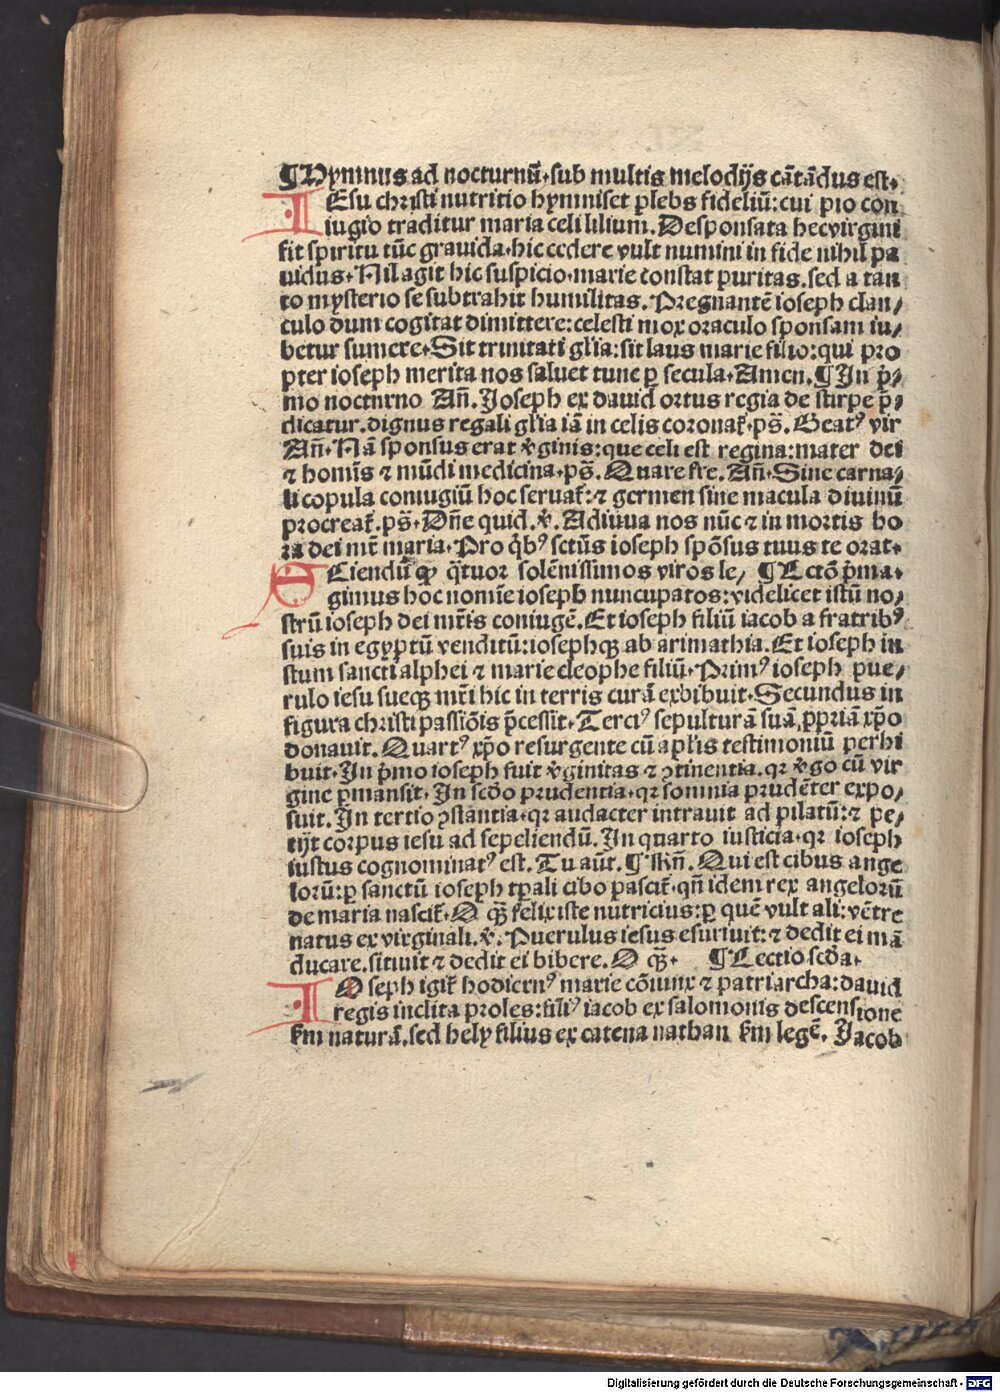 ¶Hymnus ad nocturnū.sub multis melodijs cātādus est.
IEsu christi nutritio hymniset plebs fideliū:cui pio con
iugio traditur maria celi lilium.Desponsata hecvirgini
fit spiritu tūc grauida.hic cedere vult numini in fide nihil pa
uidus.Nil agit hic suspicio.marie constat puritas.sed a tan
to mysterio se subtrahit humilitas.Pregnantē ioseph clan/
culo dum cogitat dimittere:celesti mox oraculo sponsam iu/
betur sumere.Sit trinitati gl'ia:sit laus marie filio:qui pro
pter ioseph merita nos saluet tunc ꝑ secula.Amen.¶In p̄/
mo nocturno Añ.Ioseph ex dauid ortus regia de stirpe p̄/
dicatur.dignus regali gl'ia iā in celis coronat̄.ps̄.Beatꝰ vir
Añ.Nā sponsus erat v̄ginis:que celi est regina:mater dei
⁊ homīs ⁊ mūdi medicina.ps̄.Quare fre.Añ.Sine carna/
li copula coniugiū hoc seruat̄:⁊ germen sine macula diuinū
procreat̄.ps̄.Dñe quid.℣.Adiuua nos nūc ⁊ in mortis ho
ra dei mr̄ maria.Pro q̄bꝰ sctūs ioseph spōsus tuus te orat.
SCiendū ꝙ q̄tuor solēnissimos viros le/ ¶Lectō p̄ma.
gimus hoc nomīe ioseph nuncupatos:videlicet istū no/
strū ioseph dei mr̄is coniugē.Et ioseph filiū iacob a fratribꝰ
suis in egyptū venditū:iosephqꝫ ab arimathia.Et ioseph iu
stum sancti alphei ⁊ marie cleophe filiū.Primꝰ ioseph pue/
rulo iesu sueqꝫ mr̄i hic in terris curā exhibuit.Secundus in
figura christi passiōis p̄cessit.Terciꝰ sepulturā suā ꝓpriā xp̄o
donauit.Quartꝰ xp̄o resurgente cū apl'is testimoniū perhi
buit.In p̄mo ioseph fuit v̄ginitas ⁊ ꝯtinentia.qꝛ v̄go cū vir
gine ꝑmansit.In scd̄o prudentia.qꝛ somnia prudēter expo/
suit.In tertio ꝯstantia.qꝛ audacter intrauit ad pilatū:⁊ pe/
tijt corpus iesu ad sepeliendū.In quarto iusticia.qꝛ ioseph
iustus cognominatꝰ est.Tu aūt.¶Rñ.Qui est cibus ange
lorū:ꝑ sanctū ioseph tꝑali cibo pascit̄.qñ idem rex angelorū
de maria nascit̄.O qꝫ felix iste nutricius:ꝑ quē vult ali:vētre
natus ex virginali.℣.Puerulus iesus esuriuit:⁊ dedit ei mā
ducare.sitiuit ⁊ dedit ei bibere.O qꝫ. ¶Lectio scd̄a.
IOseph igit̄ hodiernꝰ marie cōiunx ⁊ patriarcha:dauid
regis inclita proles:filiꝰ iacob ex salomonis descensione
fm̄ naturā.sed hely filius ex catena nathan fm̄ legē.Iacob
Digitalisierung gefördert durch die Deutsche Forschungsgemeinschaft - DFG